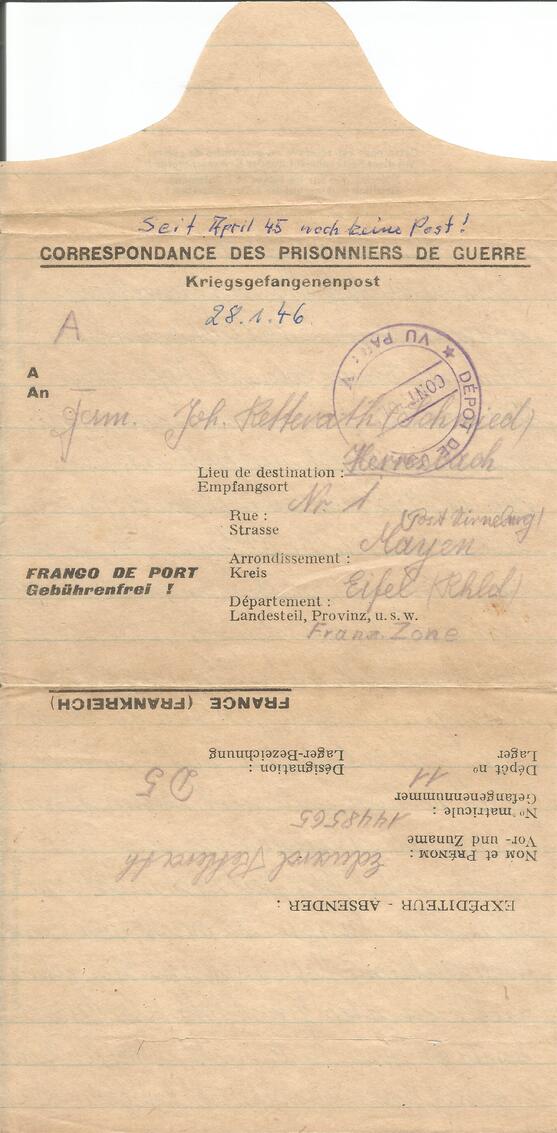 Seit April 45 noch keine Post!
CORRESPONDANCE DES PRISONNIERS DE GUERRE
Kriegsgefangenenpost
28.1.46
A
A
An
Fam. Joh. Retterath (Schmied)
Lieu de destination : Herresbach
Empfangsort
Nr. 1
Rue : (Post Virneburg)
Strasse
Arrondissement : Mayen
Kreis
FRANCO DE PORT
Gebührenfrei !
Eifel (Rhld)
Département :
Landesteil, Provinz, u.s.w.
Franz. Zone
DÉPÔT DE
VU PAR
CONT
FRANCE (FRANKREICH)
EXPÉDITEUR - ABSENDER :
NOM et PRÉNOM : Eduard Retterath
Vor- und Zuname
No matricule : 1448565
Gefangenennummer
Dépôt no 11 Désignation : D5
Lager Lager-Bezeichnung